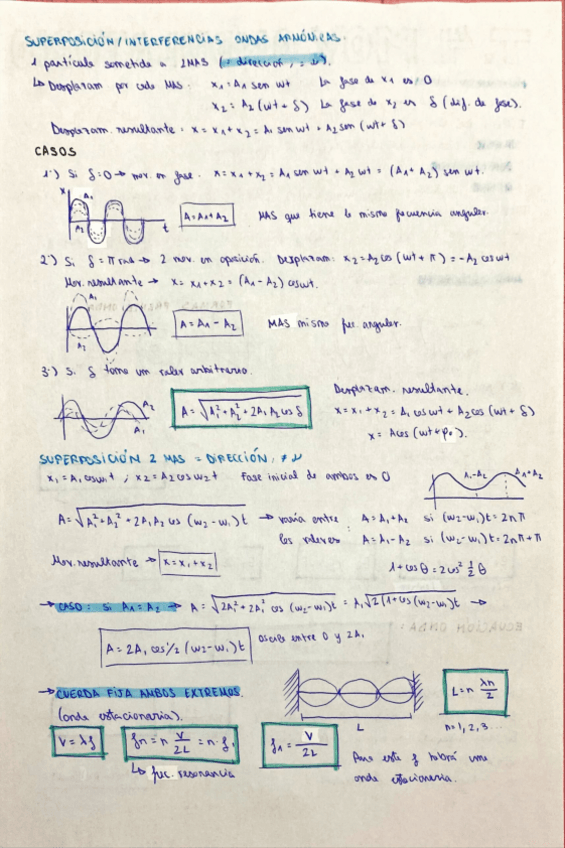 SUPERPOSICIÓN / INTERFERENCIAS ONDAS ARMÓNICAS.
1 partícula sometida a 2MAS (= dirección, = ω).
↳ Desplazam por cada MAS: x₁ = A₁ sen ωt La fase de x₁ es 0
x₂ = A₂ (ωt + δ) La fase de x₂ es δ (dif. de fase).
Desplazam. resultante: x = x₁ + x₂ = A₁ sen ωt + A₂ sen (ωt + δ)
CASOS
1º) Si δ=0 → mov. en fase. x = x₁ + x₂ = A₁ sen ωt + A₂ ωt = (A₁ + A₂) sen ωt.
x A₁
A₂ t
A = A₁ + A₂ MAS que tiene la misma frecuencia angular.
2º) Si δ = π rad → 2 mov. en oposición. Desplazam: x₂ = A₂ cos (ωt + π) = -A₂ cos ωt
Mov. resultante → x = x₁ + x₂ = (A₁ - A₂) cos ωt.
A₁
A₂
A = A₁ - A₂ MAS misma frec. angular.
3º) Si δ toma un valor arbitrario.
A₂
A₁
A = √A₁² + A₂² + 2A₁ A₂ cos δ
Desplazam. resultante.
x = x₁ + x₂ = A₁ cos ωt + A₂ cos (ωt + δ)
x = A cos (ωt + φ₀).
SUPERPOSICIÓN 2 MAS = DIRECCIÓN, ≠ ω
x₁ = A₁ cos ω₁ t ; x₂ = A₂ cos ω₂ t Fase inicial de ambos es 0
A₁-A₂ A₁+A₂
A = √A₁² + A₂² + 2A₁ A₂ cos (ω₂ - ω₁) t → varía entre los valores:
A = A₁ + A₂ si (ω₂-ω₁)t = 2nπ
A = A₁ - A₂ si (ω₂-ω₁)t = 2nπ + π
Mov. resultante → x = x₁ + x₂
1 + cos θ = 2 cos² ½ θ
→ CASO: Si A₁ = A₂ → A = √2A₁² + 2A₁² cos (ω₂-ω₁)t = A₁ √2 (1 + cos (ω₂-ω₁)t →
A = 2A₁ cos 1/2 (ω₂ - ω₁) t Oscila entre 0 y 2A₁
→ CUERDA FIJA AMBOS EXTREMOS.
(onda estacionaria).
L
L = n λn/2
n = 1, 2, 3...
v = λf
fn = n v/2L = n·f₁
↳ frec. resonancia
f₁ = v/2L
Para este f habrá una
onda estacionaria.